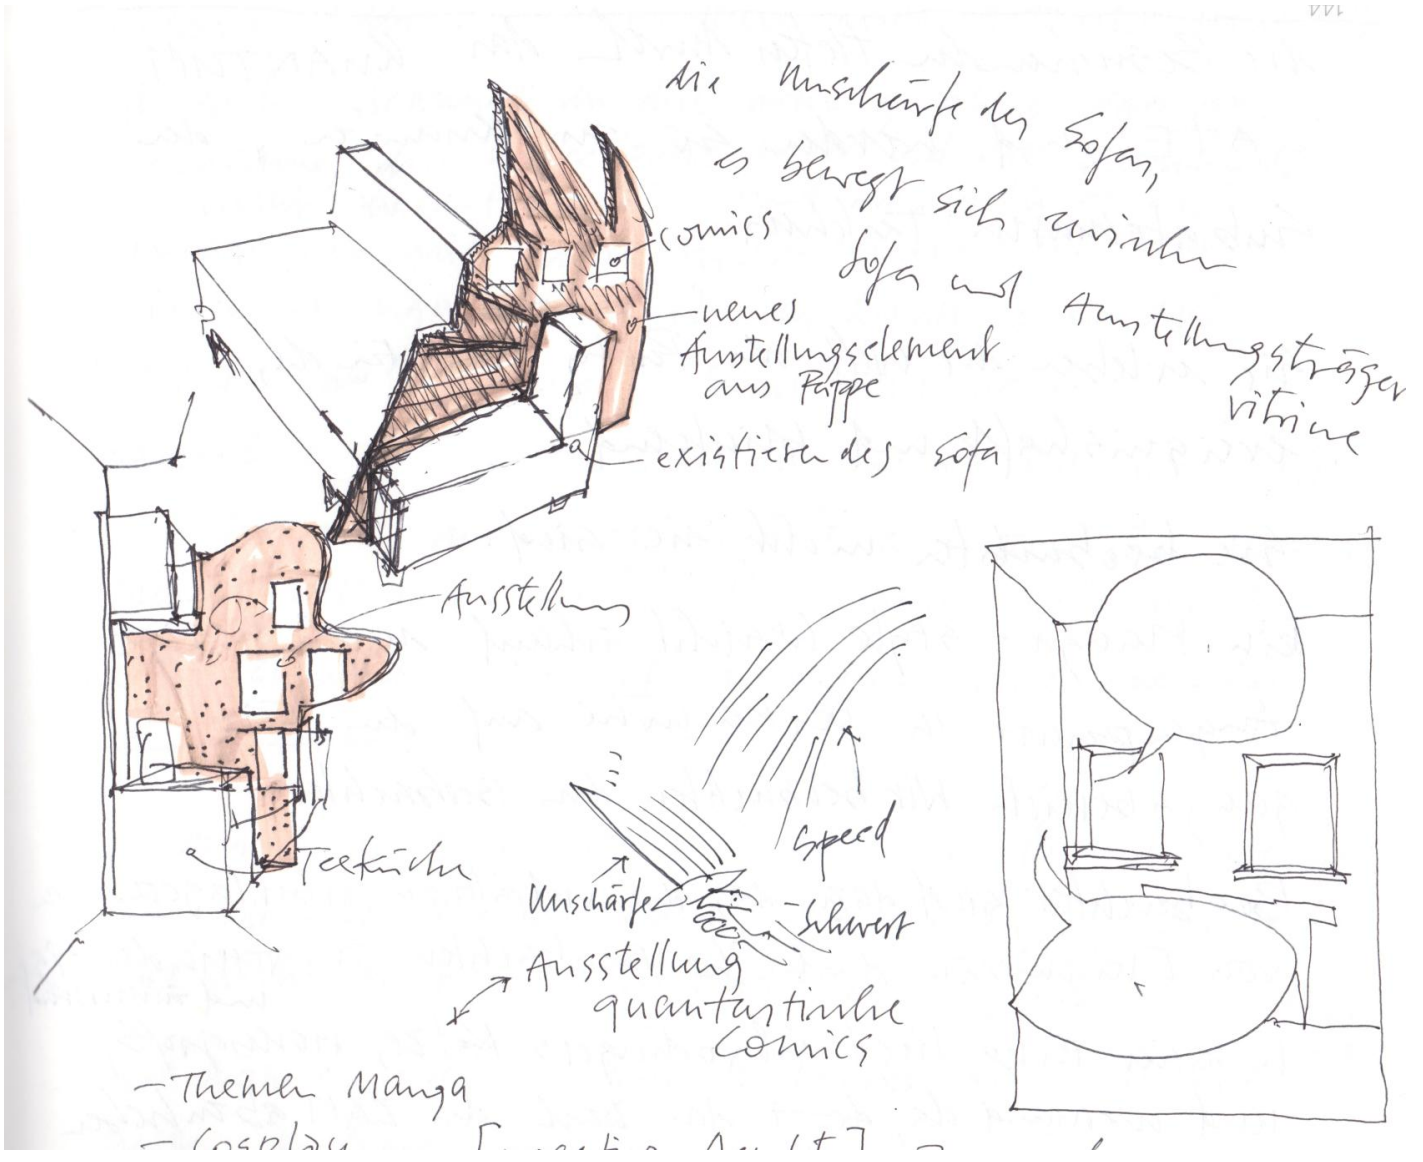 die Unschärfe des Sofas,
es bewegt sich zwischen
Sofa und Ausstellungsträger
vitrine
comics
neues
Ausstellungselement
aus Pappe
existierendes Sofa
Ausstellung
Teeküche
speed
Unschärfe
Schwert
Ausstellung
quantastische
Comics
- Themen Manga
- Cosplay